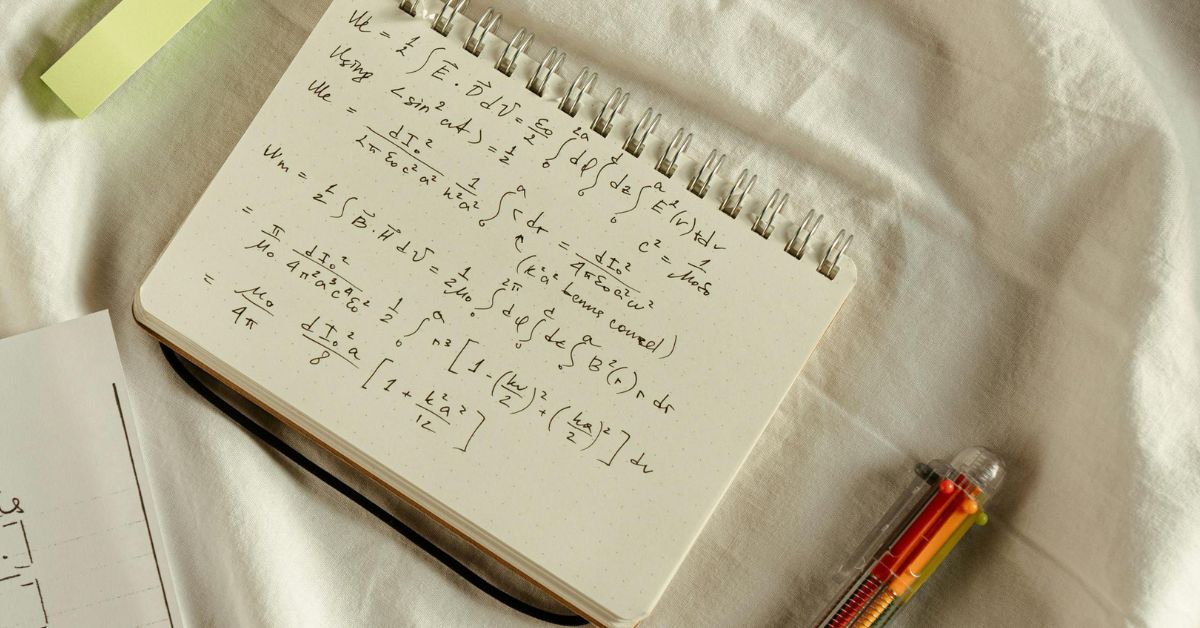 We = 1/2 ∫ E⃗ · D⃗ dV = ε₀/2 ∫₀^2π dφ ∫₀^d dz ∫₀^a E²(r) r dr
Using <sin² ωt> = 1/2 c² = 1/μ₀ε₀
We = dI₀²/2πε₀c²a² 1/k²a² ∫₀^a r dr = dI₀²/4πε₀a²ω²
(k²a² hence
Wm = 1/2 ∫ B⃗ · H⃗ dV = 1/2μ₀ ∫₀^2π dφ ∫₀^d dz ∫₀^a B²(r) r dr
= π/μ₀ dI₀²/4π²a⁴c⁴ε₀² 1/2 ∫₀^a r³ [1 - (kr/2)² + (ka/2)²] dr
= μ₀/4π dI₀²a/8 [1 + k²a²/12]